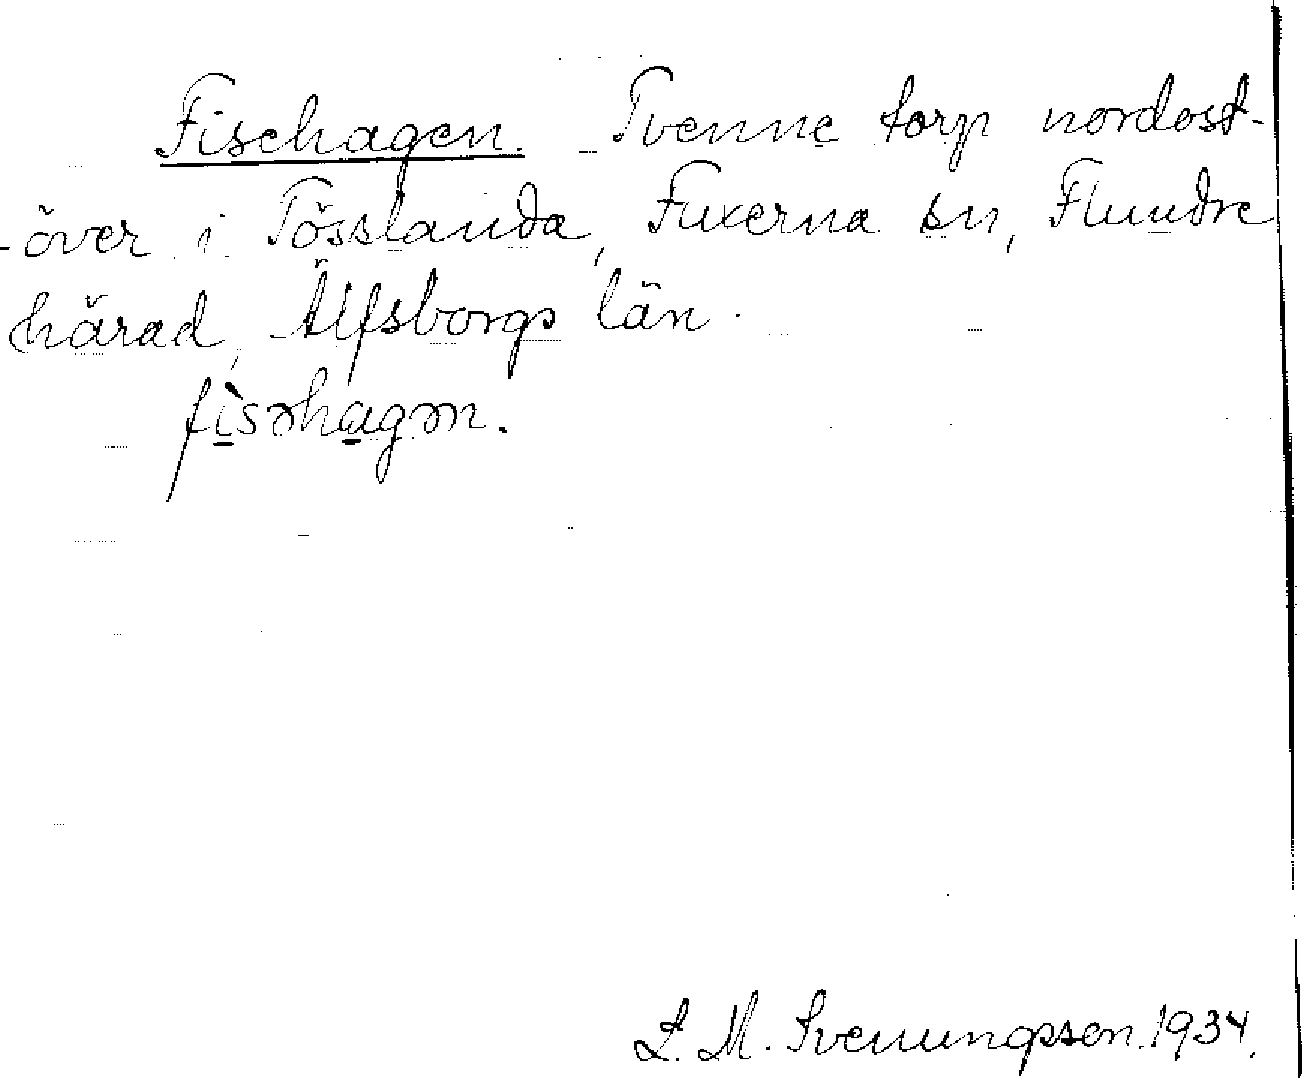 Fisehagen. Tvenne torp nordost-
-över i Tösslanda, Fuxerna sn, Flundre
härad, Älfsborgs län.
fìsəhagən.
L. M. Svenungsson. 1934.